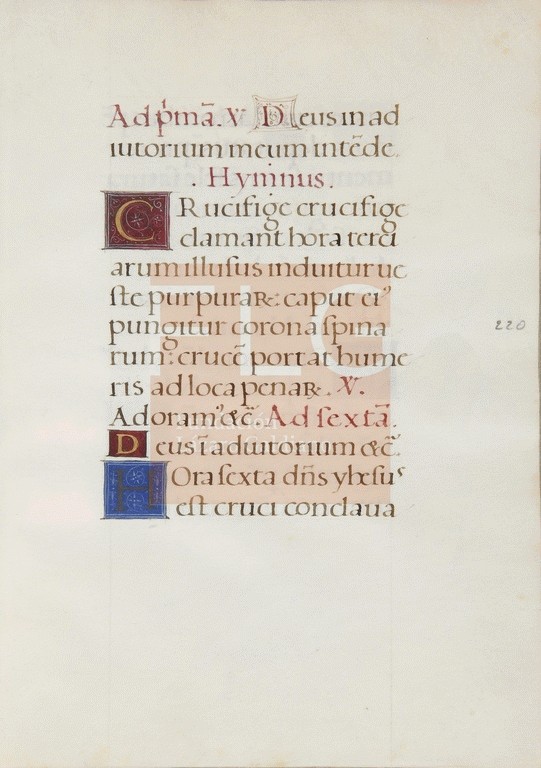 Ad p̃mã. V̷ Deus in ad
iutorium meum intẽde.
. Hymnus.
CRucifige crucifige
clamant hora terci
arum illusus induitur ue
ste purpuraꝝ: caput ei⁹
pungitur corona spina
rum: crucẽ portat hume
ris ad loca penaꝝ. V̷.
Adoram⁹ &c̃. Ad sextã.
Deus ĩ adiutorium &c̃.
HOra sexta dñs yhesuˢ
est cruci conclaua
220
FLG
Fundación
Lázaro Galdiano